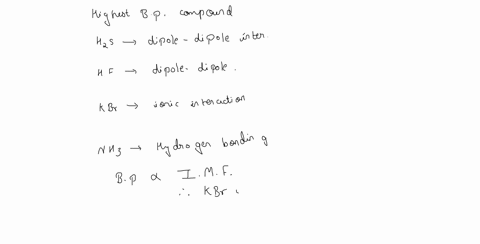 Highest B.p. compound
H2S → dipole - dipole inter.
HF → dipole - dipole.
KBr → ionic interaction
NH3 → Hydrogen bonding
B.p ∝ I.M.F.
∴ KBr